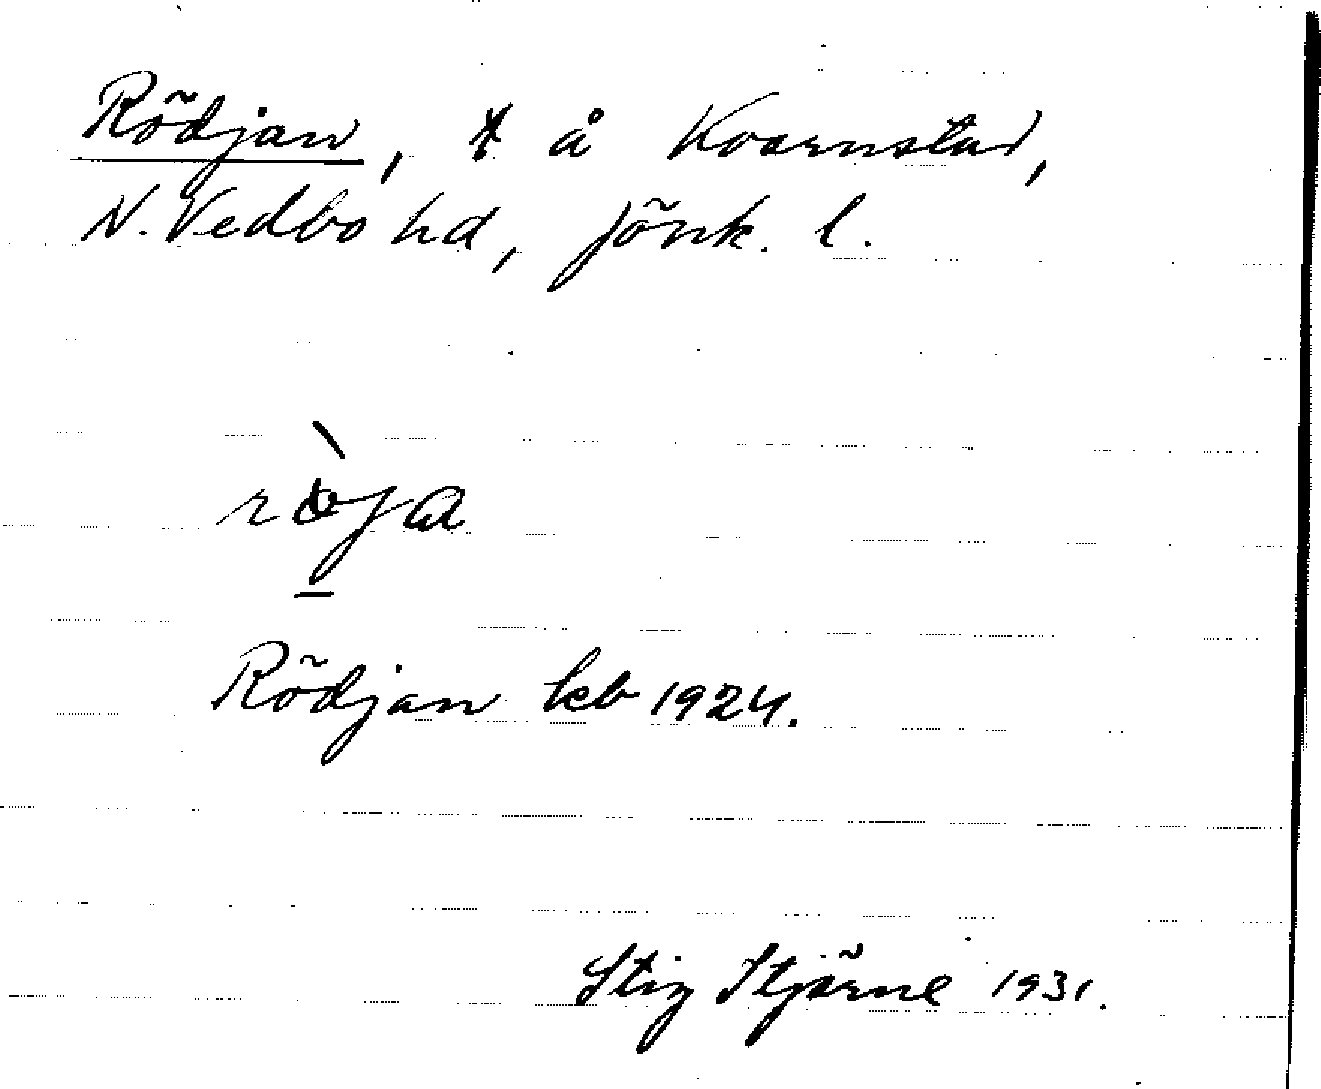 Rödjan, t å Kvarnstad,
N. Vedbo hd, Jönk. l.
röja
Rödjan kb 1924.
Stig Stjärne 1931.